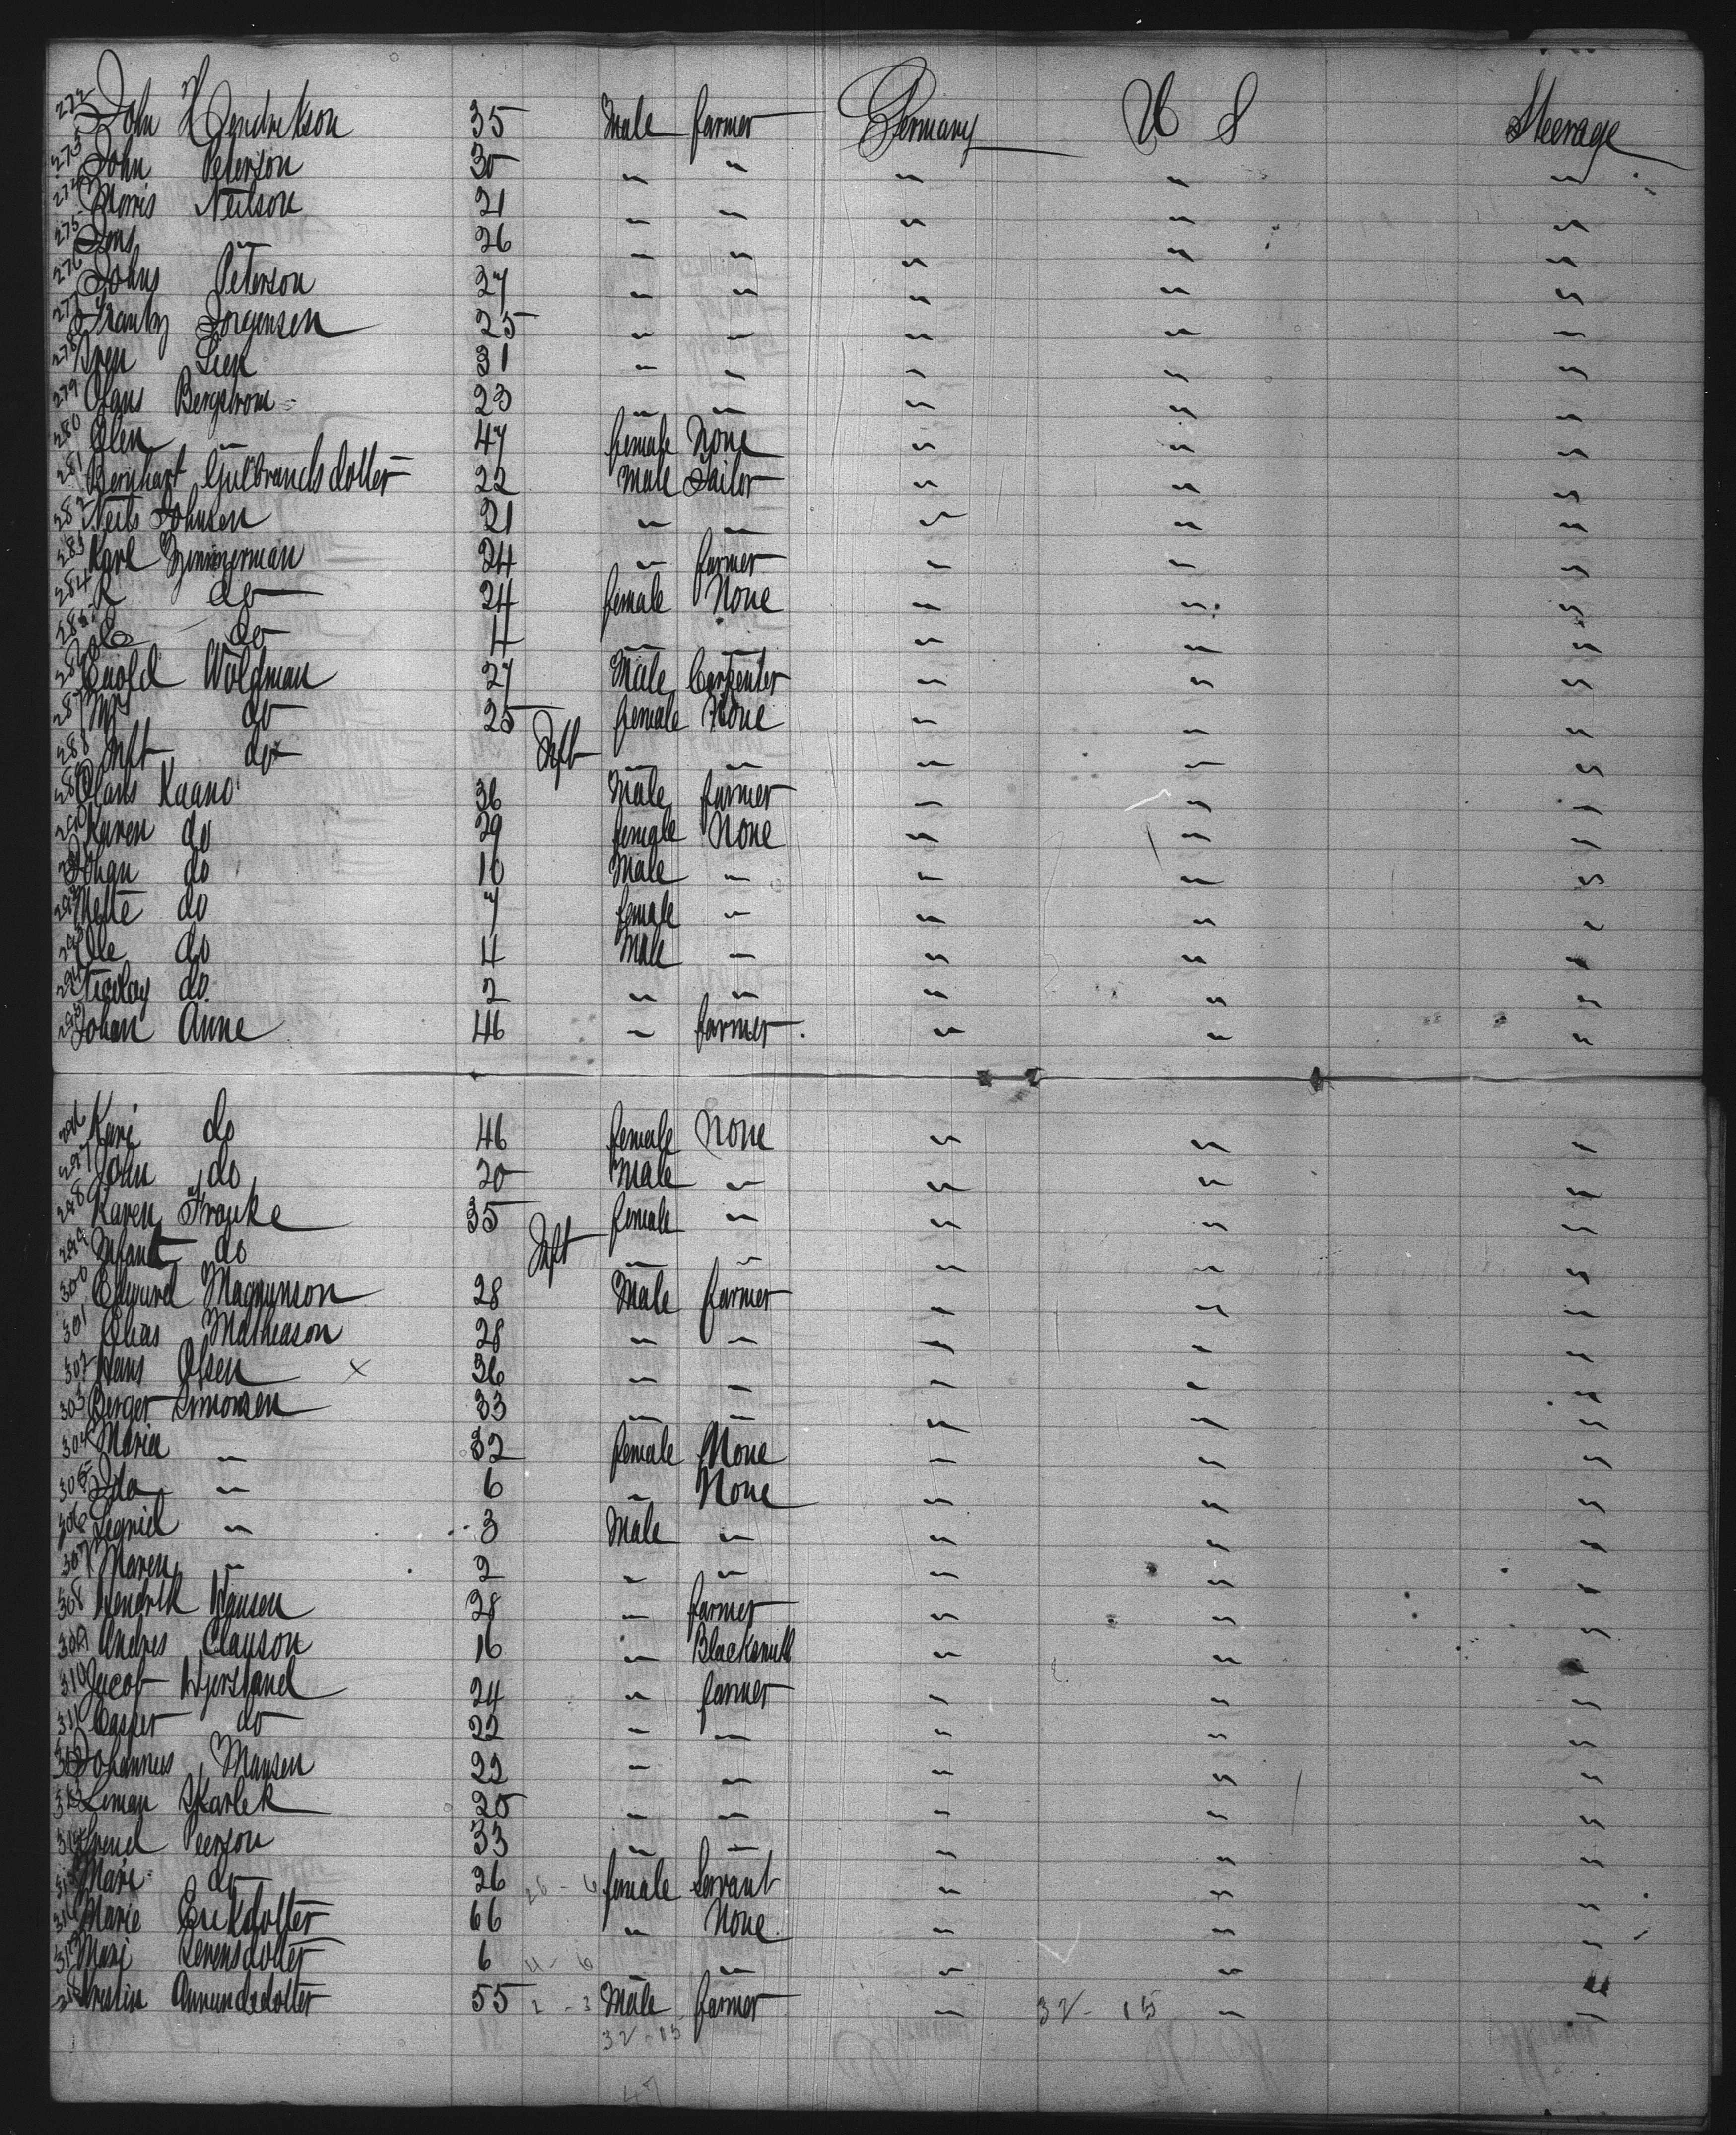 272 John Hendrikson 35 Male farmer Germany U S Steerage
273 John Peterson 30 " " " " "
274 Morris Neilson 21 " " " " "
275 Jens " 26 " " " " "
276 Johns Peterson 27 " " " " "
277 Jorgensen 25 " " " " "
278 Iven Lien 31 " " " " "
279 Claus Bergstrom 23 " " " " "
280 Olen " 47 female None " " "
281 Bernhart Gulbrandsdotter 22 Male Sailor " " "
282 Neils Johnsen 21 " " " " "
283 Karl Zimmerman 24 " farmer " " "
284 R do 24 female None " " "
285 do 4 " " " " "
286 Woldman 27 Male Carpenter " " "
287 Mrs do 25 female None " " "
288 Inft do Inft " " " " "
289 Kaano 36 Male farmer " " "
290 Karen do 29 female None " " "
291 Johan do 10 Male " " " "
292 Mette do 7 female " " " "
293 Ole do 4 Male " " " "
294 Nicolay do 2 " " " " "
295 Johan Anne 46 " farmer " " "
296 Kari do 46 female None " " "
297 John do 20 Male " " " "
298 Karen Franke 35 female " " " "
299 Infant do Inft " " " " "
300 Edward Magnunson 28 Male farmer " " "
301 Elias Matheason 28 " " " " "
302 Hans Olsen x 36 " " " " "
303 Berger Simonsen 33 " " " " "
304 Maria " 32 female None " " "
305 Ida " 6 " None " " "
306 Segrid " 3 Male " " " "
307 Maren " 2 " " " " "
308 Hendrik Hansen 28 " farmer " " "
309 Andres Clauson 16 " Blacksmith " " "
310 Jacob 24 " farmer " " "
311 Casper do 22 " " " " "
312 Johannes Mansen 22 " " " " "
313 Skarlek 20 " " " " "
314 Peerson 33 " " " " "
315 Mari do 26 26 - 6 female Servant " " "
316 Marie Erikdotter 66 " None " " "
317 Mari Sevensdotter 6 4 - 6 " " " " "
318 Kristin Amundsdotter 55 2 - 3 Male farmer " 32 - 15 " "
32 - 15
47